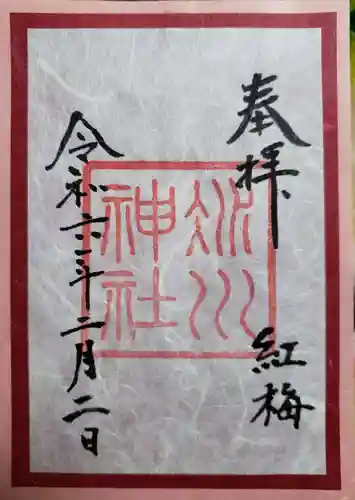 奉拝
紅梅
冰川
神社
令和六年二月二日